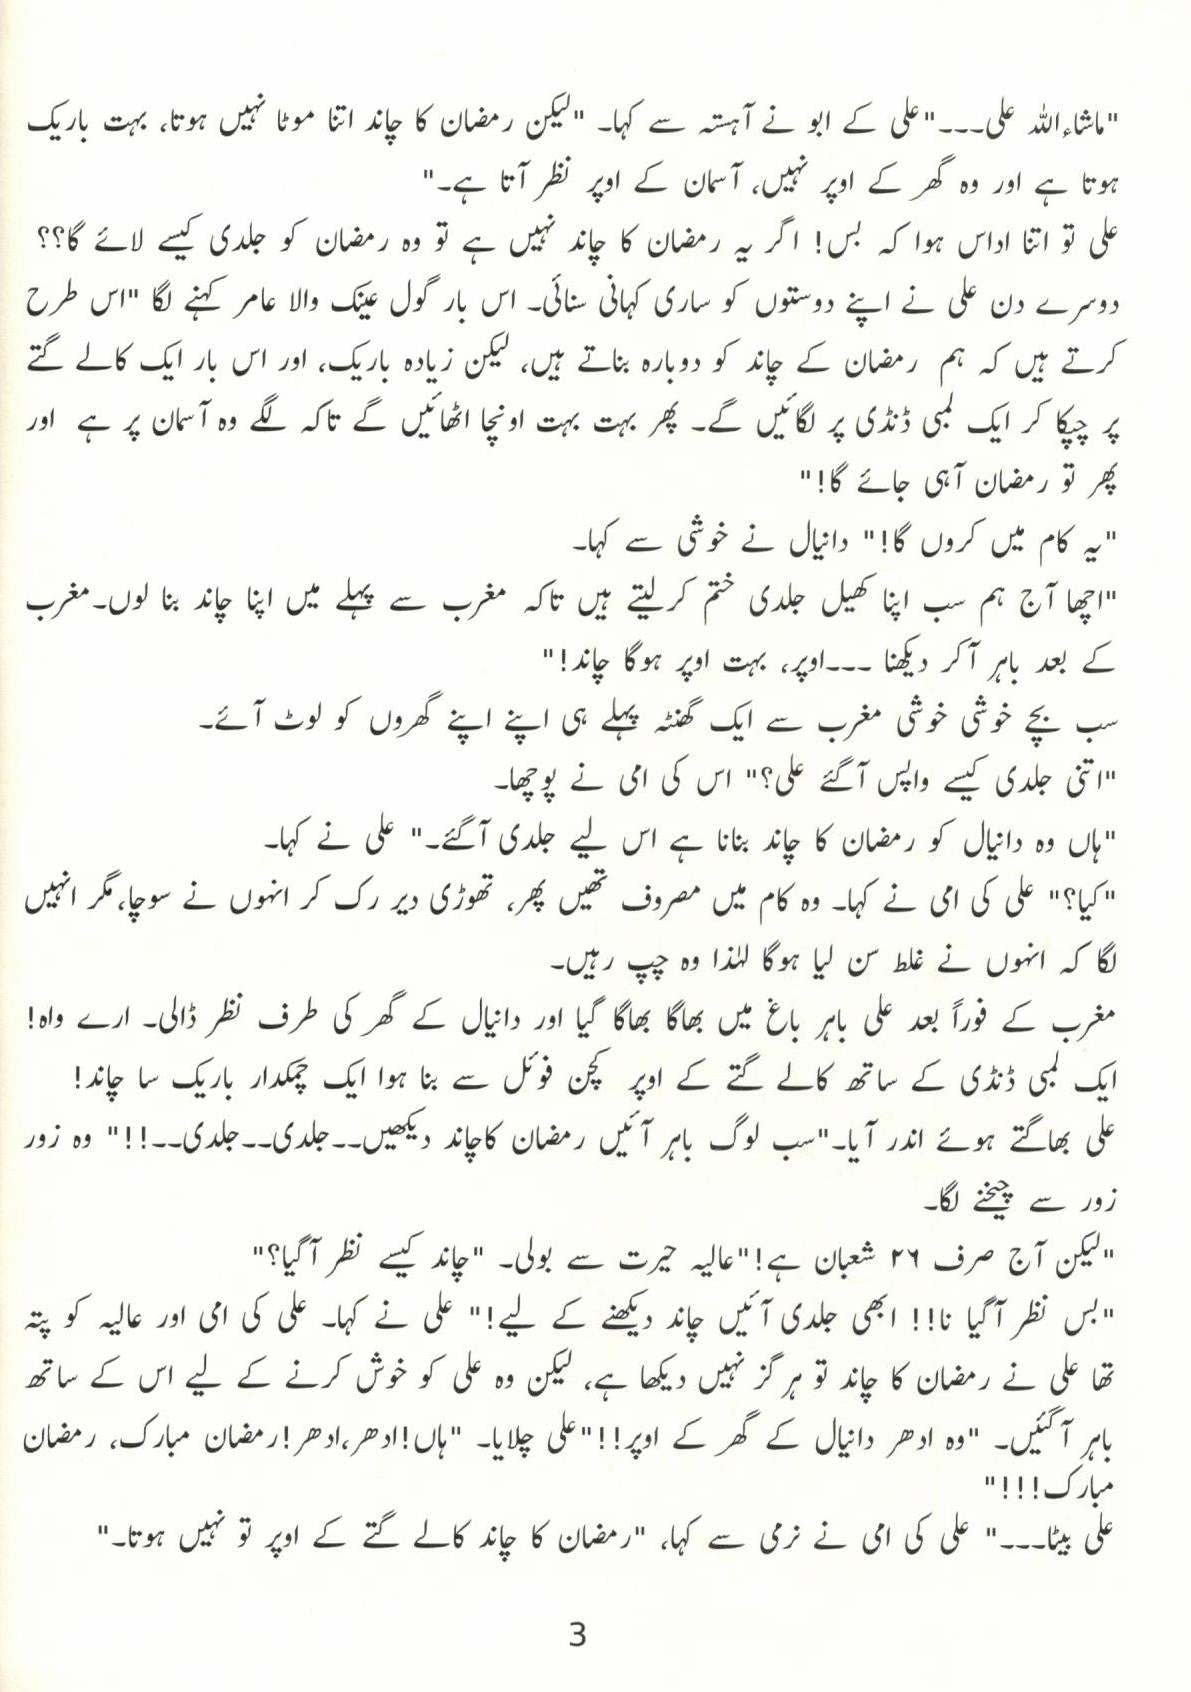 "ماشاءاللہ علی۔۔۔"علی کے ابو نے آہستہ سے کہا۔ "لیکن رمضان کا چاند اتنا موٹا نہیں ہوتا، بہت باریک
ہوتا ہے اور وہ گھر کے اوپر نہیں، آسمان کے اوپر نظر آتا ہے۔"
علی تو اتنا اداس ہوا کہ بس! اگر یہ رمضان کا چاند نہیں ہے تو وہ رمضان کو جلدی کیسے لائے گا؟؟
دوسرے دن علی نے اپنے دوستوں کو ساری کہانی سنائی۔ اس بار گول عینک والا عامر کہنے لگا "اس طرح
کرتے ہیں کہ ہم رمضان کے چاند کو دوبارہ بناتے ہیں، لیکن زیادہ باریک، اور اس بار ایک کالے گتے
پر چپکا کر ایک لمبی ڈنڈی پر لگائیں گے۔ پھر بہت بہت اونچا اٹھائیں گے تاکہ لگے وہ آسمان پر ہے اور
پھر تو رمضان آہی جائے گا!"
"یہ کام میں کروں گا!" دانیال نے خوشی سے کہا۔
"اچھا آج ہم سب اپنا کھیل جلدی ختم کرلیتے ہیں تاکہ مغرب سے پہلے میں اپنا چاند بنا لوں۔مغرب
کے بعد باہر آکر دیکھنا ۔۔۔اوپر، بہت اوپر ہوگا چاند!"
سب بچے خوشی خوشی مغرب سے ایک گھنٹہ پہلے ہی اپنے اپنے گھروں کو لوٹ آئے۔
"اتنی جلدی کیسے واپس آگئے علی؟" اس کی امی نے پوچھا۔
"ہاں وہ دانیال کو رمضان کا چاند بنانا ہے اس لیے جلدی آگئے۔" علی نے کہا۔
"کیا؟" علی کی امی نے کہا۔ وہ کام میں مصروف تھیں پھر، تھوڑی دیر رک کر انہوں نے سوچا،مگر انہیں
لگا کہ انہوں نے غلط سن لیا ہوگا لہٰذا وہ چپ رہیں۔
مغرب کے فوراً بعد علی باہر باغ میں بھاگا بھاگا گیا اور دانیال کے گھر کی طرف نظر ڈالی۔ ارے واہ!
ایک لمبی ڈنڈی کے ساتھ کالے گتے کے اوپر کچن فوئل سے بنا ہوا ایک چمکدار باریک سا چاند!
علی بھاگتے ہوئے اندر آیا۔"سب لوگ باہر آئیں رمضان کاچاند دیکھیں۔۔جلدی۔۔جلدی۔۔!!" وہ زور
زور سے چیخنے لگا۔
"لیکن آج صرف ۲۶ شعبان ہے!"عالیہ حیرت سے بولی۔ "چاند کیسے نظر آگیا؟"
"بس نظر آگیا نا!! ابھی جلدی آئیں چاند دیکھنے کے لیے!" علی نے کہا۔ علی کی امی اور عالیہ کو پتہ
تھا علی نے رمضان کا چاند تو ہرگز نہیں دیکھا ہے، لیکن وہ علی کو خوش کرنے کے لیے اس کے ساتھ
باہر آگئیں۔ "وہ ادھر دانیال کے گھر کے اوپر!!"علی چلایا۔ "ہاں!ادھر،ادھر!رمضان مبارک، رمضان
مبارک!!!"
علی بیٹا۔۔۔" علی کی امی نے نرمی سے کہا، "رمضان کا چاند کالے گتے کے اوپر تو نہیں ہوتا۔"
3